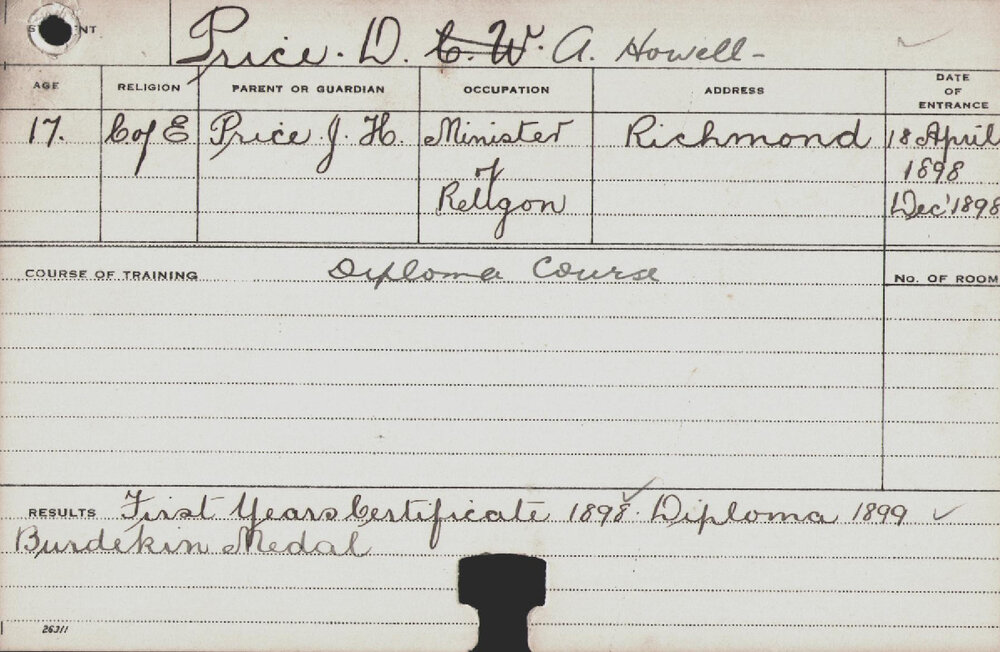 STUDENT Price. D. C. W. A. Howell-
AGE RELIGION PARENT OR GUARDIAN OCCUPATION ADDRESS DATE OF ENTRANCE
17. C of E Price J. H. Minister of Religon Richmond 18 April 1898 Dec' 1898
COURSE OF TRAINING Diploma Course No. OF ROOM
RESULTS First Years Certificate 1898. Diploma 1899
Burdekin Medal
26311